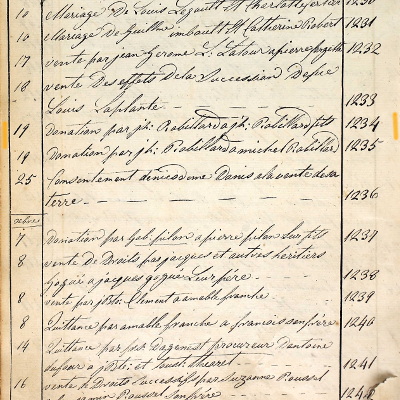 10 Mariage De Louis Legault et Charlotte 1230
10 Mariage De Guillme imbault et Catherine Robert 1231
17 vente par jean Gerome L. Latour a pierre 1232
18 vente Des effets de la Succession De feu
Louis Laplante 1233
19 Donation par jh: Robillard a jh: Robillard fils 1234
19 donation par jh: Robillard a michel Robillard 1235
25 Consentement de a la vente de sa
terre. 1236
7 Donation par Gab: pilon a pierre pilon Sur fils 1237
8 vente De Droits par jacques et autres heritiers
Goguè a jacques goguè Leur pére 1238
8 vente par jBte: Clement a amable franche 1239
8 Quittance par amable franche a francois son frére 1240
14 Quittance par Dagenest procureur Dantoine
a jBte: et 1241
16 vente de Droits Successifs par Suzanne Roussel
Roussel Son frére